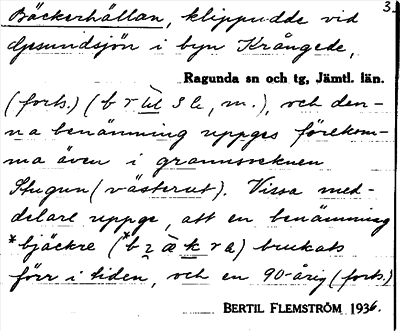 3.
Bäckerhällan, klippudde vid
Gesundsjön i byn Krångede,
Ragunda sn och tg, Jämtl. län.
(forts.) ( m.), och den-
na benämning uppges förekom-
ma även i grannsocknen
Stugun (västerut). Vissa med-
delare uppge, att en benämning
*bjäckre brukats
förr i tiden, och en 90-årig (forts.)
BERTIL FLEMSTRÖM 1936.